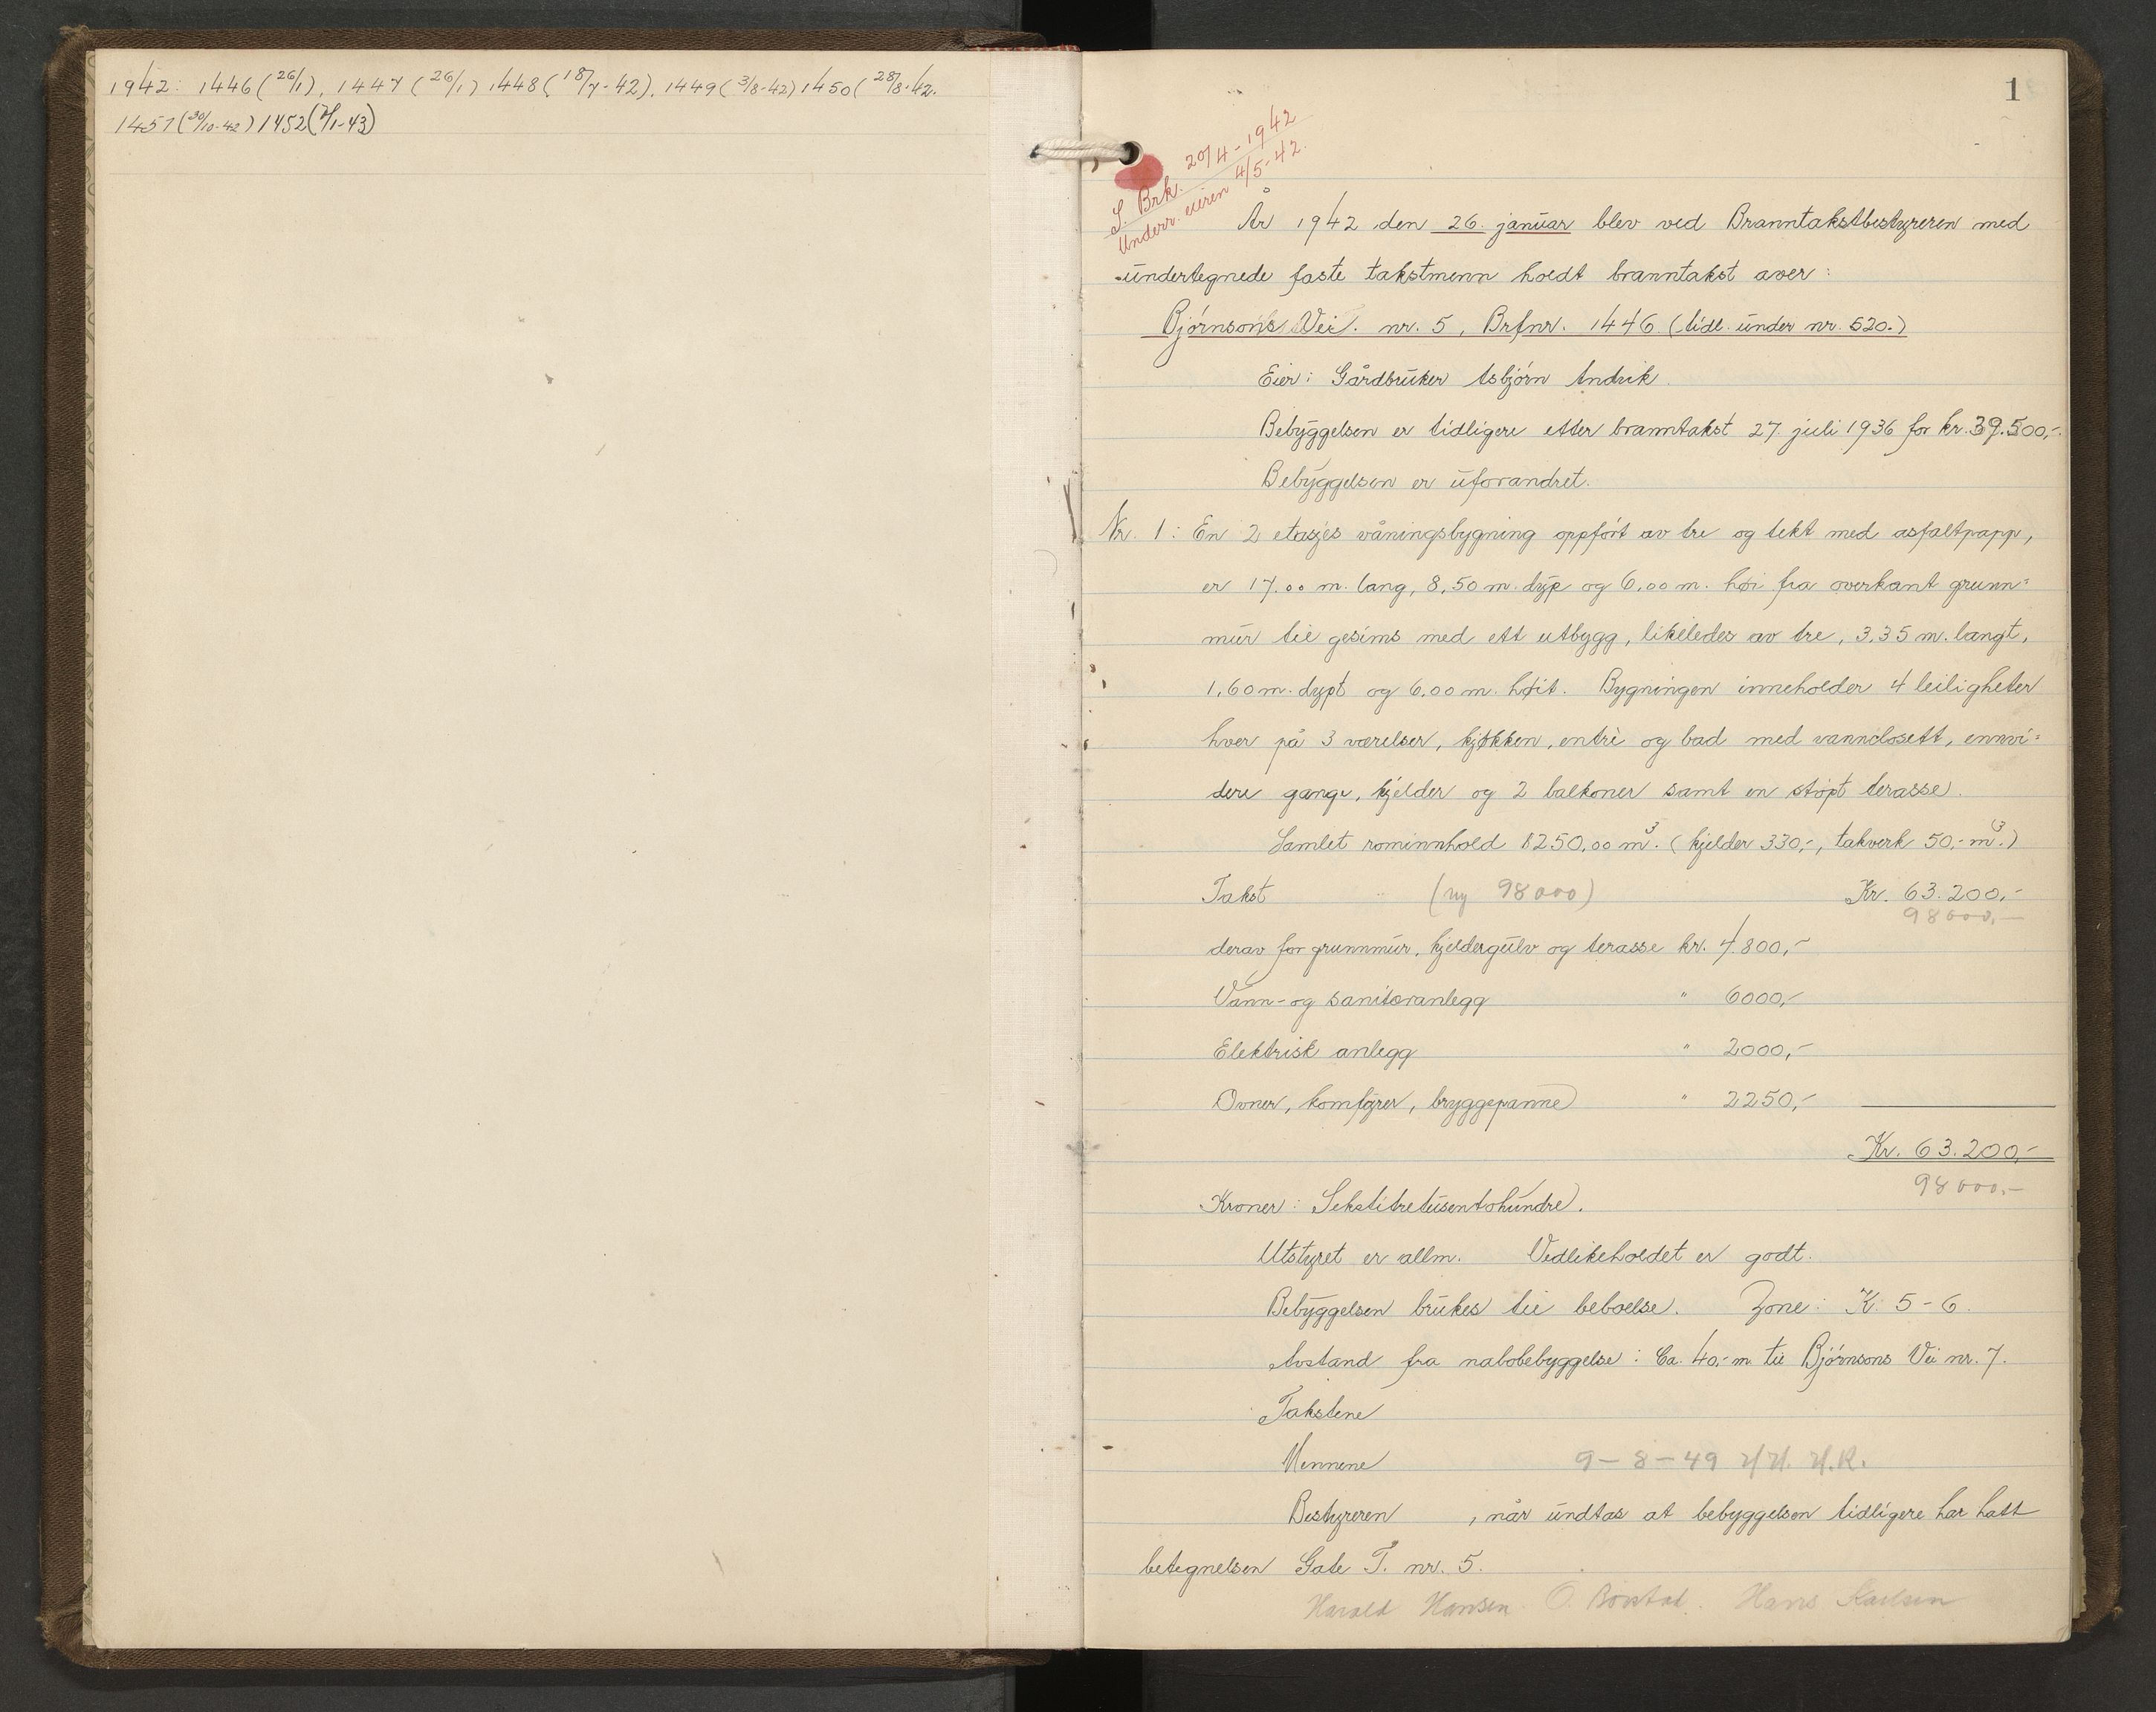 1942: 1446 (26/1), 1447 (26/1) 1448 (18/7-42), 1449 (3/8-42) 1450 (28/8-42.
1451 (30/10-42) 1452 (7/1-43)
1
S. Brk. 20/4-1942
Underr. eieren 4/5-42.
År 1942 den 26. januar blev ved Branntakstbestyreren med
undertegnede faste takstmenn holdt branntakst over:
Bjørnsons Vei. nr. 5, Brfnr. 1446 (tidl. under nr. 520.)
Eier: Gårdbruker Asbjørn Andvik
Bebyggelsen er tidligere etter branntakst 27. juli 1936 for kr. 39.500,-
Bebyggelsen er uforandret.
Nr. 1: En 2 etasjes våningsbygning oppført av tre og tekt med asfaltpapp,
er 17.00 m. lang, 8,50 m. dyp og 6,00 m. høi fra overkant grunn=
mur til gesims med ett utbygg, likeledes av tre, 3,35 m. langt,
1,60 m. dypt og 6,00 m. høit. Bygningen inneholder 4 leiligheter
hver på 3 værelser, kjøkken, entrè og bad med vannclosett, ennvi=
dere gange, kjelder og 2 balkoner samt en støpt terasse.
Samlet rominnhold 1250,00 m³. (kjelder 330,-, takverk 50,- m³.)
Takst (ny 98000) Kr. 63.200,-
98000,-
derav for grunnmur, kjeldergulv og terasse kr. 4.800,-
Vann- og sanitæranlegg " 6000,-
Elektrisk anlegg " 2000,-
Ovner, komfyrer, bryggepanne " 2250,-
Kr. 63.200,-
98000,-
Kroner: Sekstitretusentohundre.
Utstyret er allm. Vedlikeholdet er godt.
Bebyggelsen brukes til beboelse. Zone: K. 5-6.
Avstand fra nabobebyggelse: Ca. 40,- m. til Bjørnsons Vei nr. 7.
Takstene
Mennene 9-8-49 H.H. H.K.
Bestyreren , når undtas at bebyggelsen tidligere har hatt
betegnelsen Gate T. nr. 5.
Harald Hansen Hans Karlsen